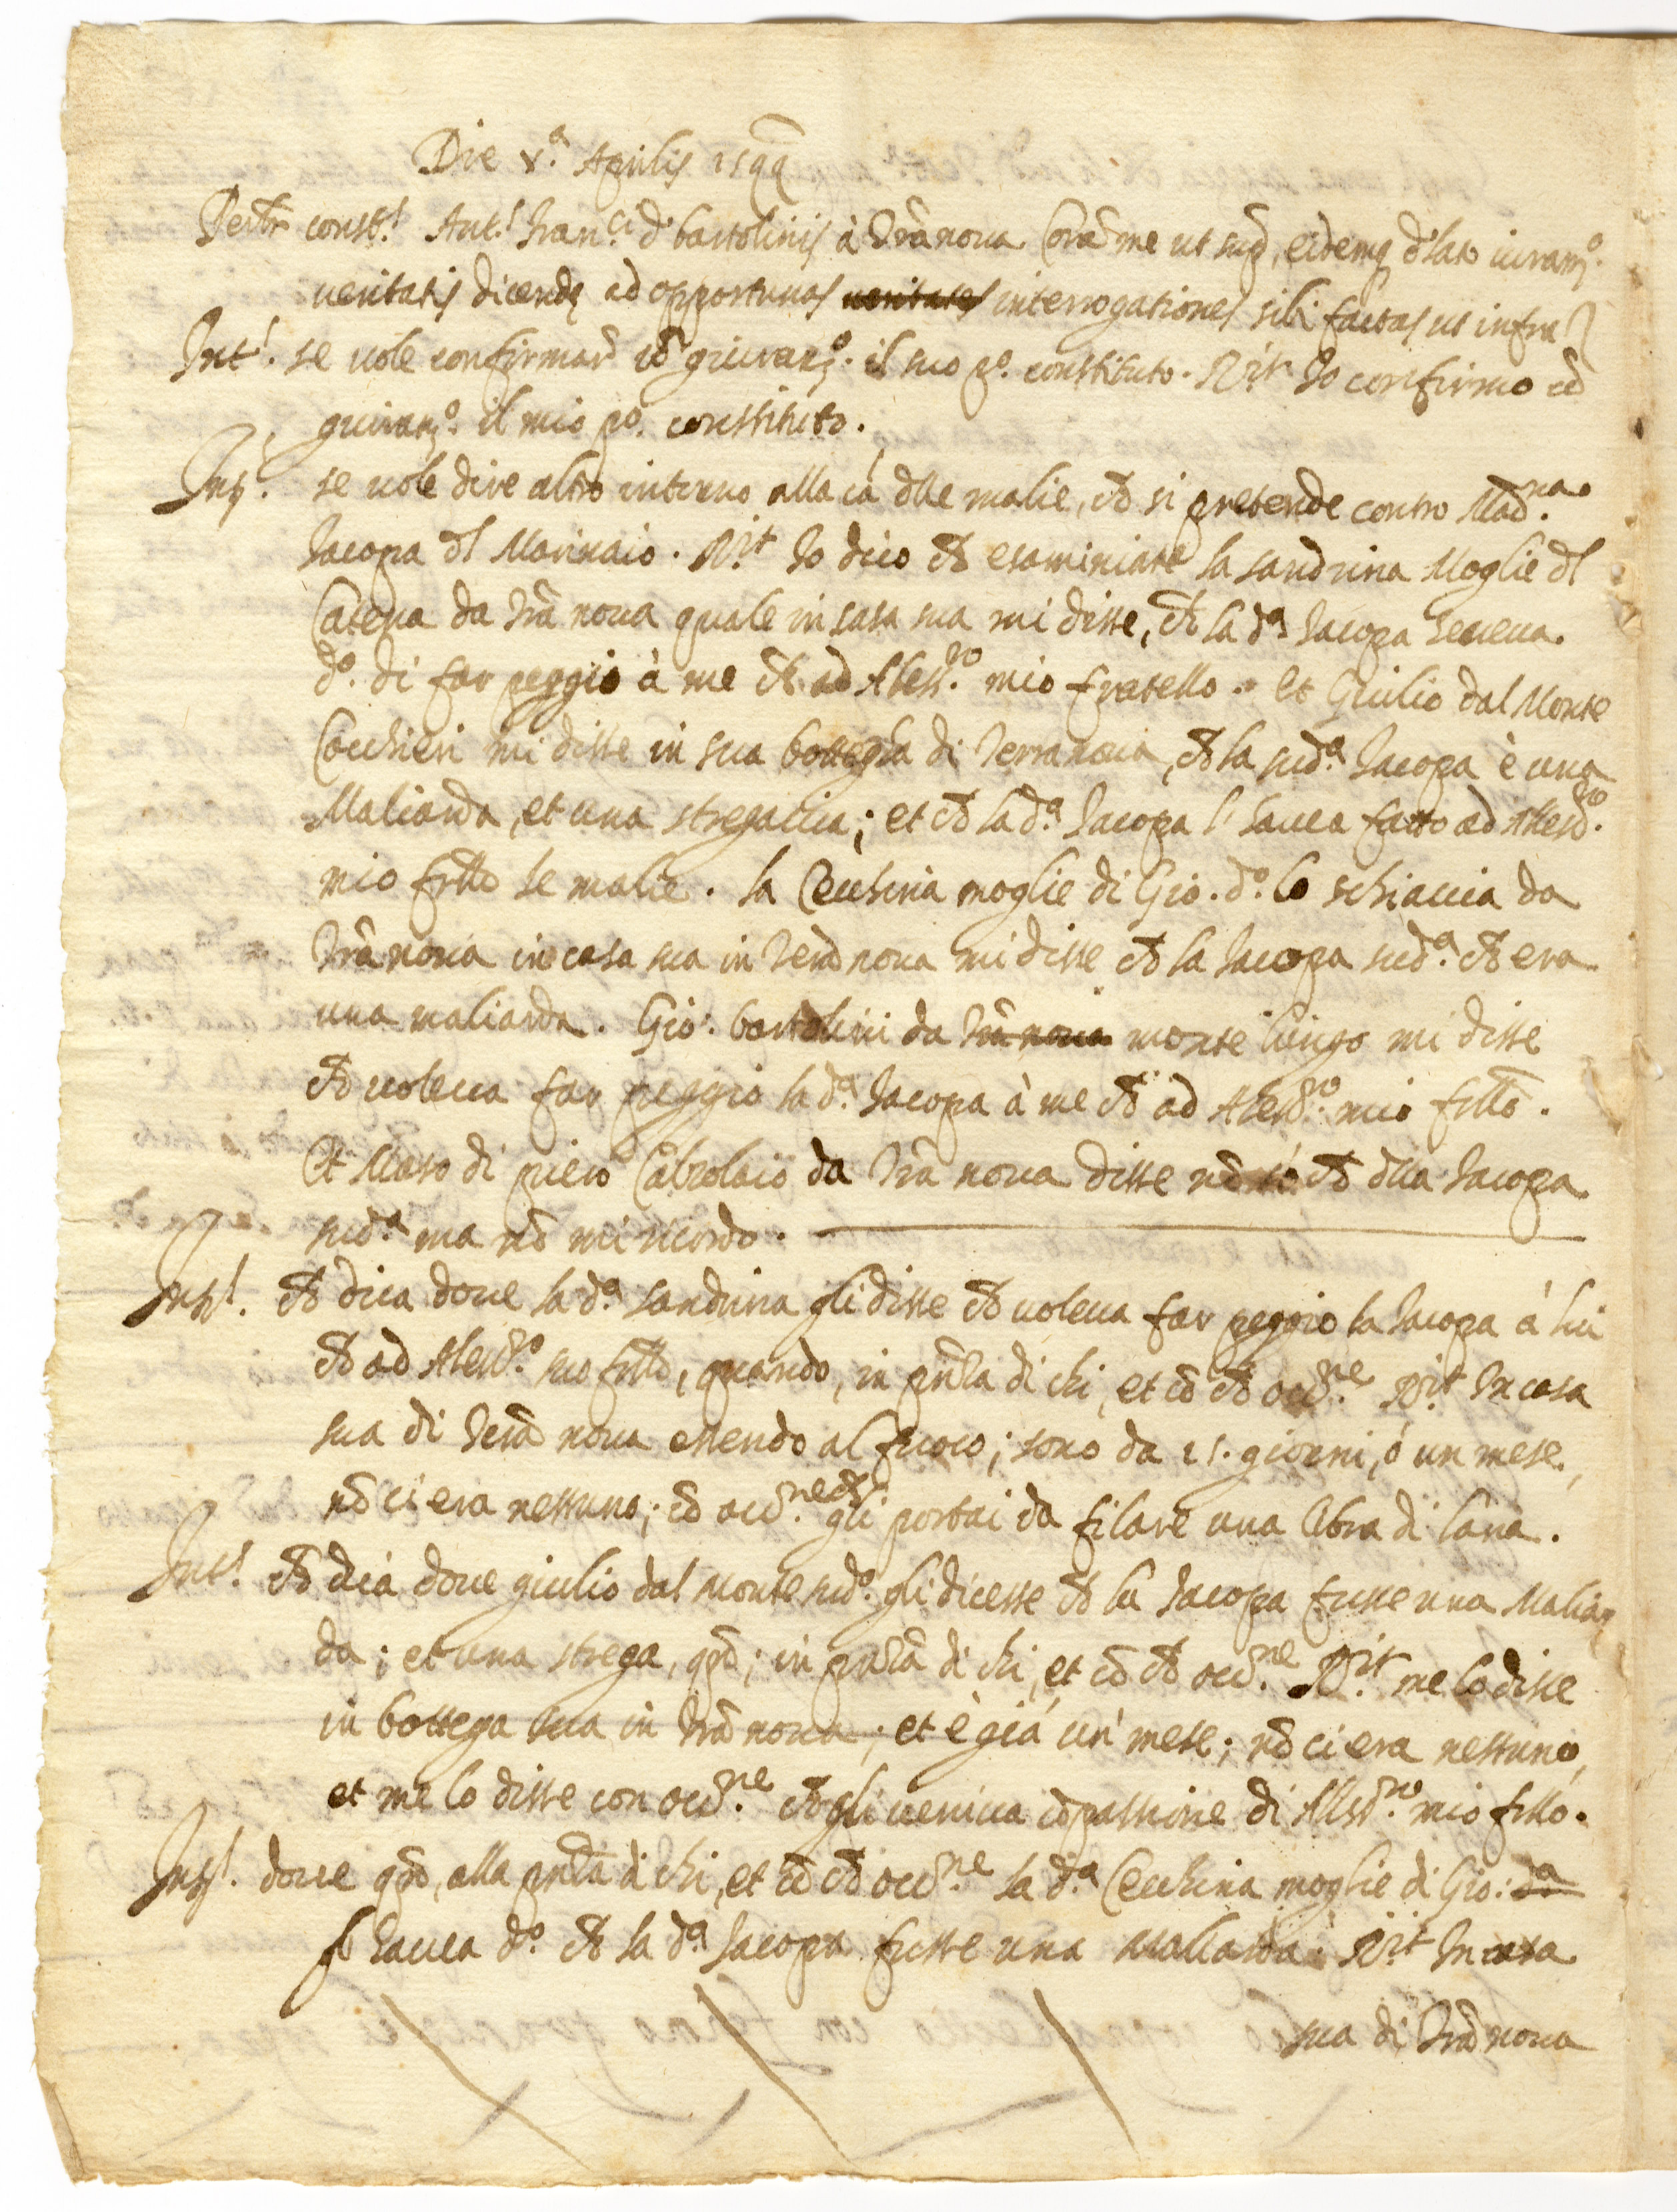 Die x.a Aprilis 1599
Const.s Ant.s Fran.ci d' bartolinis à Trãnoua Corã me ut sup, eidemq dlato iuram.o
ueritatis dicende ad opportunas ueritates interrogationes sibi factas ut infra
Int.s se uole confirmar cõ giuram.o il suo p.o constituto. R.it Io confirmo cõ
giuram.o il mio p.o constituto.
Int.s se uole dire altro intorno alla cã dlle malie, ch si pretende contro Mad.na
Iacopa dl Marinaio. R.it Io dico ch esaminiate la sandrina Moglie dl
Catena da Trã noua quale in casa sua mi disse, ch la d.a Iacopa haueua
d.o di far peggio à me ch ad Aless.ro mio fratello. et Giulio dal Monte
Cocchieri mi disse in sua bottegha di Terranoua, ch la sud.a Iacopa è una
Maliarda, et una stregaccia; et ch la d.a Iacopa l' hauea fatto ad Alessd.ro
mio frtto le malie. la Cecchina moglie di Gio. d.o lo schiaccia da
Trã noua in casa sua in Terã noua mi disse ch la Iacopa sud.a ch era
una maliarda. Gio: bartolini da Trã noua monte lungo mi disse
ch uoleua far peggio la d.a Iacopa à me ch ad Alessd.ro mio frtto.
Et Maso di piero Calzolaio da Trã noua disse nõ sò ch dlla Iacopa
sud.a ma nõ mi ricordo.
Int.s ch dica doue la d.a sandrina gli disse ch uoleua far peggio la Iacopa à lui
ch ad Alessd.ro suo frtto, quando, in pñza di chi, et cõ ch occ.ne R.it In casa
sua di Terã noua essendo al fuoco; sono da 15. giorni, ò un mese,
nõ ci era nessuno; cõ occ.ne ch gli portai da filare una libra di lana.
Int.s ch dica doue giulio dal monte sud.o gli dicesse ch la Iacopa fusse una Maliar
da; et una strega, qñ; in pñza di chi, et cõ ch occ.ne R.it me lo disse
in bottega sua in Trã noua; et è già un' mese; nõ ci era nessuno,
et me lo disse con occ.ne ch gli ueniua cõpassione di Alessd.ro mio frtto.
Int.s doue qñ, alla pñza di chi, et cõ ch occ.ne la d.a Cecchina moglie di Gio: d.a
hauea d.o ch la d.a Iacopa fusse una maliarda. R.it In casa
sua di Trã noua